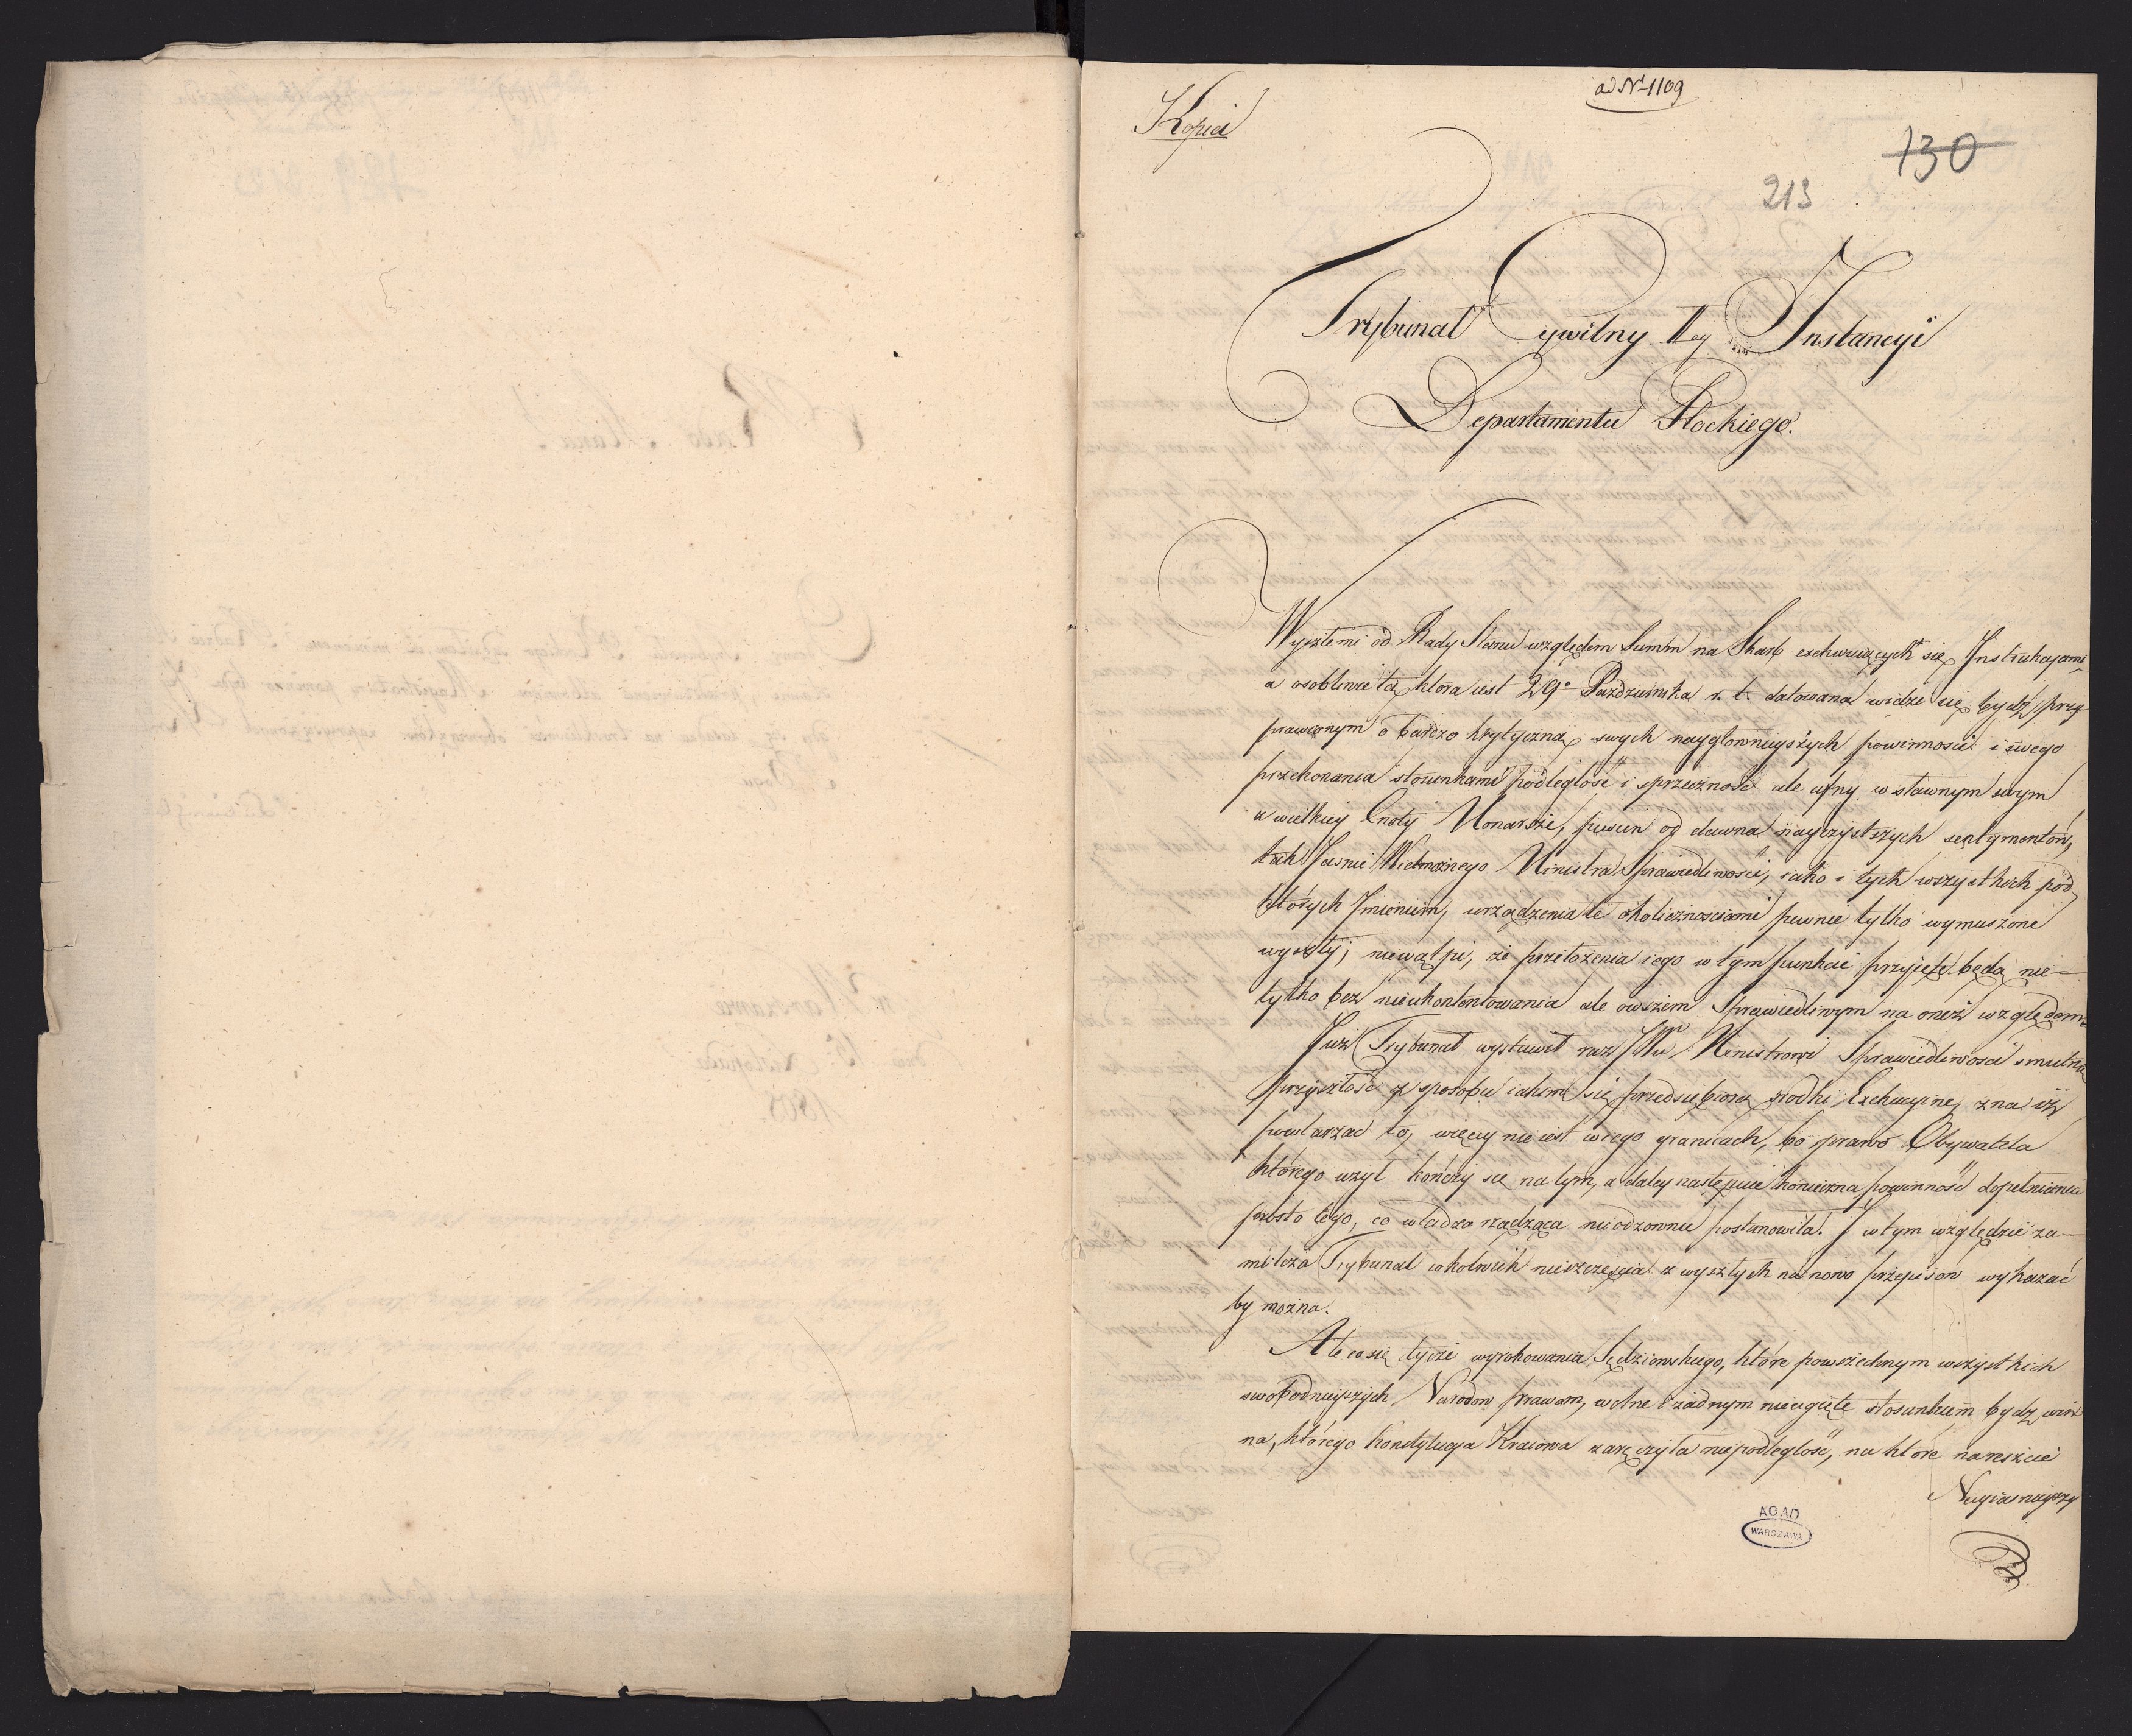 Kopia
ad N 1109
130
213
Trybunał Cywilny I ey Instancyi
Departamentu Płockiego.
Wyszłemi od Rady Stanu względem Summ na Skarb exekwuiących się Instrukcyami
a osobliwie tą która iest 29° Pazdziernika r. t. datowana widzi się bydź przy-
prawionym o bardzo krytyczną swych naygłownieyszych powinnosci i swego
przekonania stosunkami podległość i sprzeczność ale ufny w sławnym swym
z wielkiey Cnoty Monarsze, pewien od dawna nayczystszych sentymentów,
tak Jasnie Wielmożnego Ministra Sprawiedliwości, iako i tych wszystkich pod
których Jmieniem, urządzenia te okolicznosciami pewnie tylko wymuszone
wyszły, niewątpi, że przełożenia iego w tym punkcie przyjęte będą nie-
tylko bez nieukontentowania ale owszem Sprawiedliwym na oneż względem.
Już Trybunał wystawił raz JWu Ministrowi Sprawiedliwosci smutną
przyszłość z sposobu iakim się przedsiębiorą srodki Exekucyine, zna iż
powtarzac to, więcey nie iest w iego granicach, bo prawo Obywatela
którego uzył kończy się na tym, a daley następuie konieczna powinność dopełnienia
prosto tego, co władza rządząca nieodzownie postanowiła. J w tym względzie za-
milcza Trybunał cokolwiek nieszczęscia z wyszłych na nowo przepisow wykazać
by można.
Ale co się tycze wyrokowania Sędziowskiego, które powszechnym wszystkich
swobodnieyszych Narodow prawom, wolne i żadnym nieugięte stosunkiem bydz win-
na, którego konstytucya Kraiowa zaręczyła niepodległość, na które nareszcie
Nayiasnieyszy
AGAD
WARSZAWA